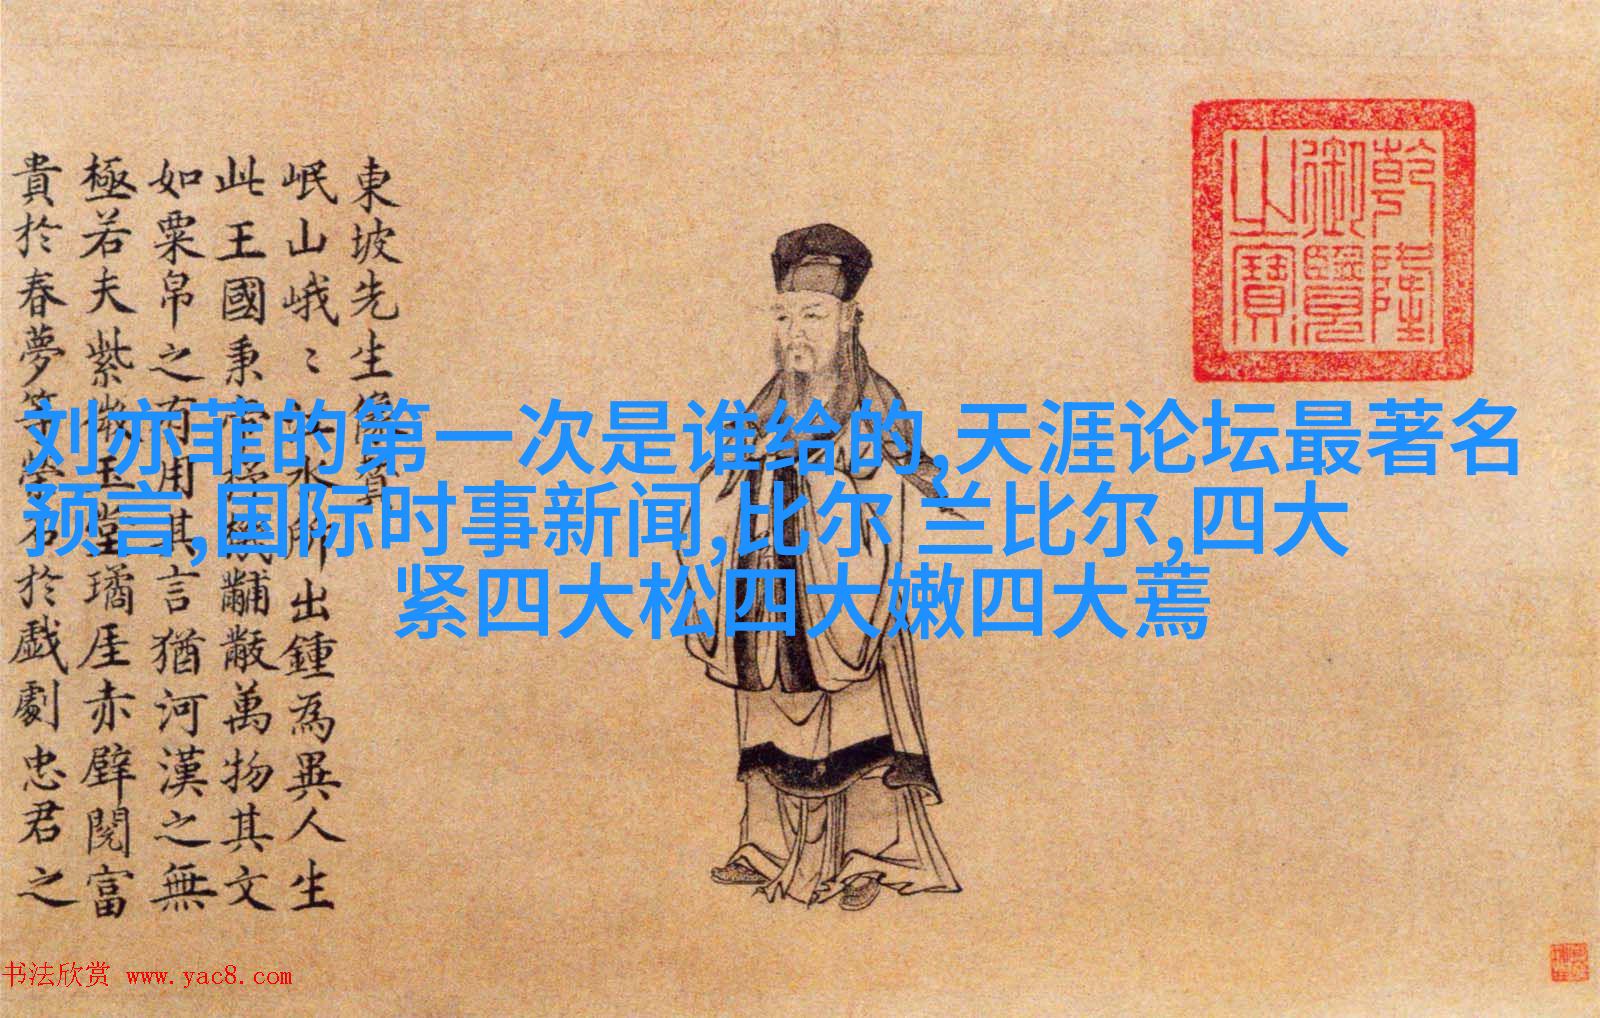 東坡先生像贊
岷山峨〻江水所出鍾為異人生
此王國秉帝杼機黼黻萬物其文
如粟帛之有用其言猶河漢之無
極若夫紫微玉堂璚厓赤壁閱富
貴於春夢等榮名於戲劇忠君之
乾隆
御覽
之寶
刘亦菲的第一次是谁给的,天涯论坛最著名
预言,国际时事新闻,比尔 兰比尔,四大
紧四大松四大嫩四大蔫
书法欣赏 www.yac8.com